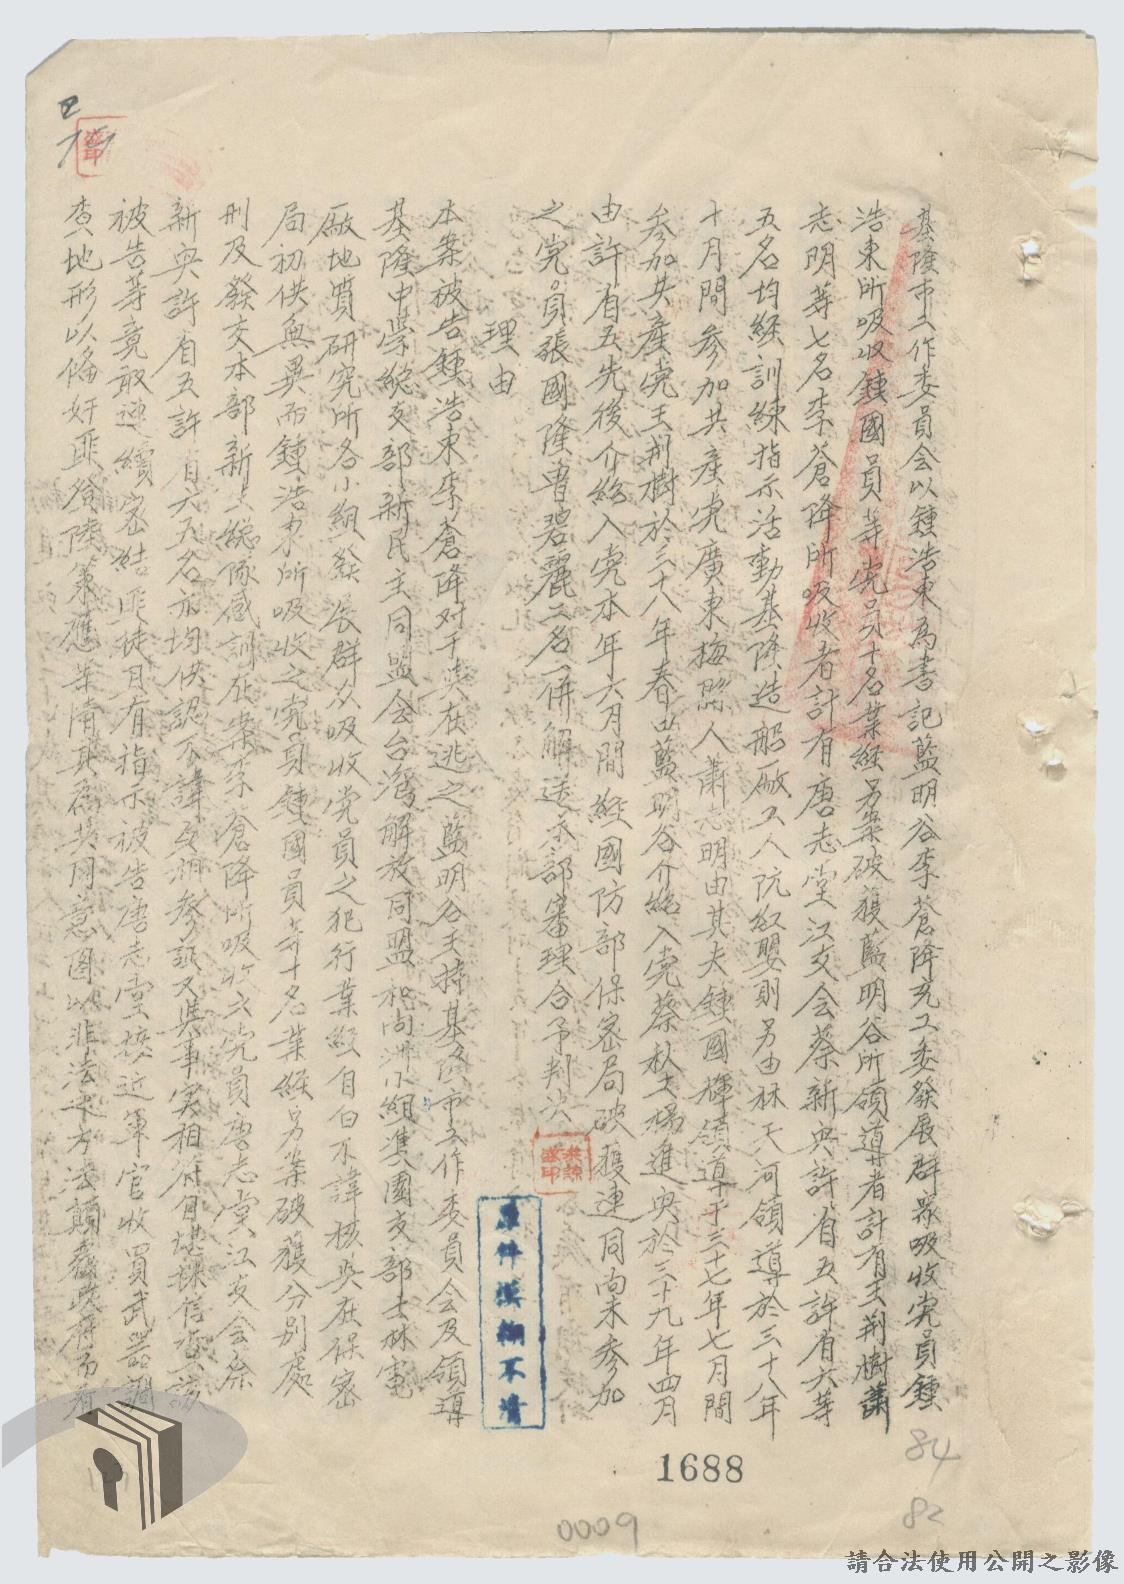 基隆市工作委員会以鍾浩東為書記藍明谷李蒼降充工委發展群眾吸收党員鍾
浩東所吸收鍾國員等党員十名業経另案破獲藍明谷所領導者計有王荊樹蕭
志明等七名李蒼降所吸收者計有唐志堂江支会蔡新興許省五許省六等
五名均経訓練指示活動基隆造船廠工人阮紅嬰則另由林天河領導於三十八年
十月間參加共産党廣東梅縣人蕭志明由其夫鍾國輝領導于三十七年七月間
參加共産党王荊樹於三十八年春由藍明谷介紹入党蔡秋土楊進興於三十九年四月
由許省五先後介紹入党本年六月間経國防部保密局破獲連同尚未參加
之党員張國隆曹碧麗二名一併解送本部審理合予判决
理由
本案被告鍾浩東李蒼降对于與在逃之藍明谷主持基隆市工作委員会及領導
基隆中学総支部新民主同盟会台湾解放同盟和尚洲小組進入國支部士林電
廠地質研究所各小組發展群众吸收党員之犯行業經自白不諱核與在保密
局初供無異而鍾浩東所吸收之党員鍾國員等十名業經另案破獲分別處
刑及發交本部新生総隊感訓在案李蒼降所吸收之党員唐志堂江支会蔡
新興許省五許省六五名亦均供認不諱互相參証又與事实相符自堪採信查該
被告等竟敢連續密結匪徒且有指示被告唐志堂接近軍官收買武器調
查地形以俻奸匪登陸策應等情其為共同意圖以非法之方法顛覆政府而着
原件模糊不清
1688
0009
84
82
請合法使用公開之影像